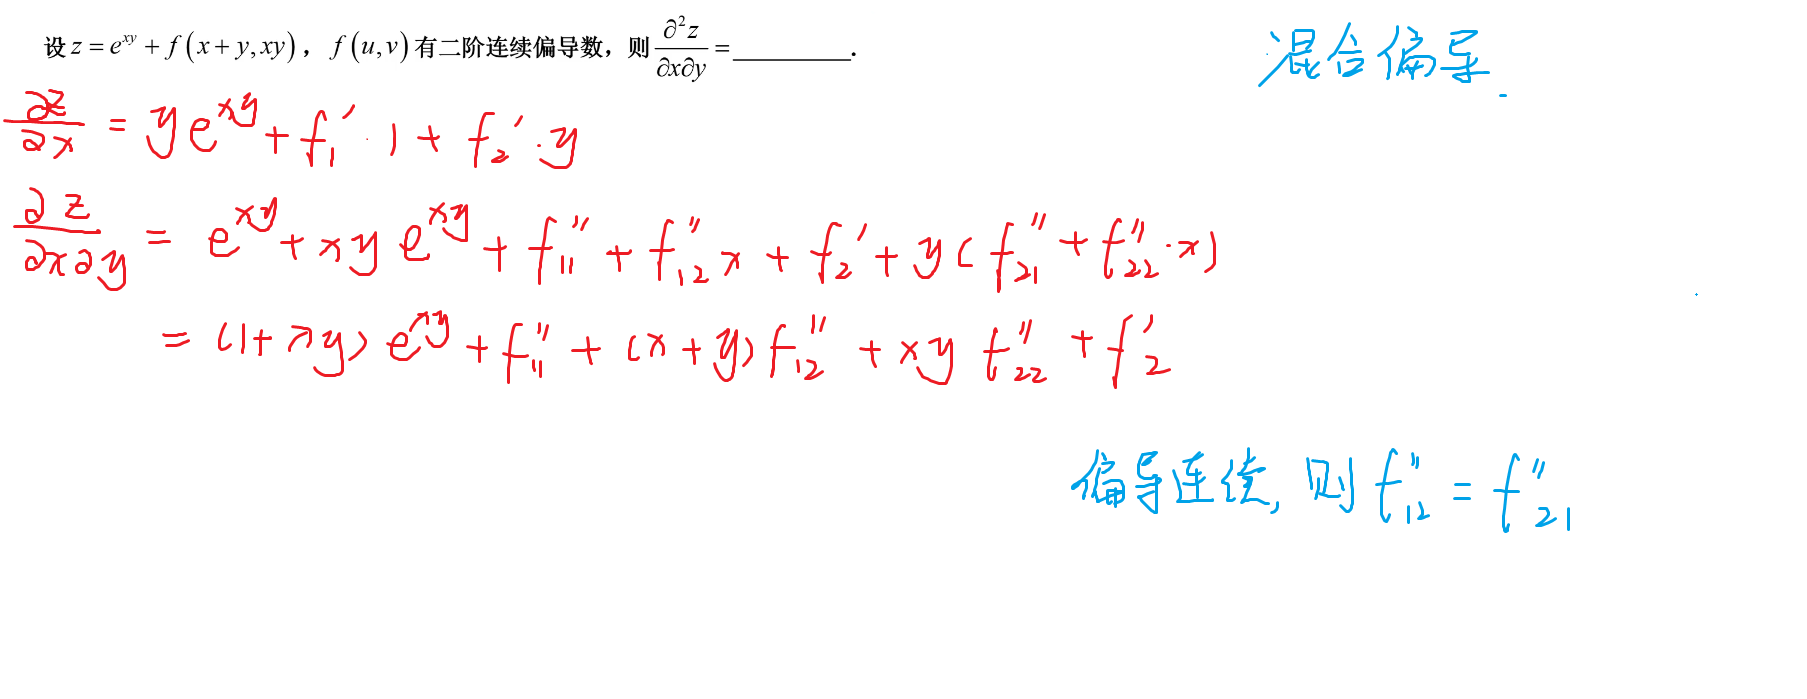 设 z = e^{xy} + f(x + y, xy)，f(u, v) 有二阶连续偏导数，则 \frac{∂²z}{∂x∂y} = ________.
混合偏导.
\frac{∂z}{∂x} = ye^{xy} + f₁′·1 + f₂′·y
\frac{∂z}{∂x∂y} = e^{xy} + xye^{xy} + f₁₁″ + f₁₂″x + f₂′ + y(f₂₁″ + f₂₂″·x)
= (1+xy)e^{xy} + f₁₁″ + (x+y)f₁₂″ + xyf₂₂″ + f₂′
偏导连续, 则 f₁₂″ = f₂₁″